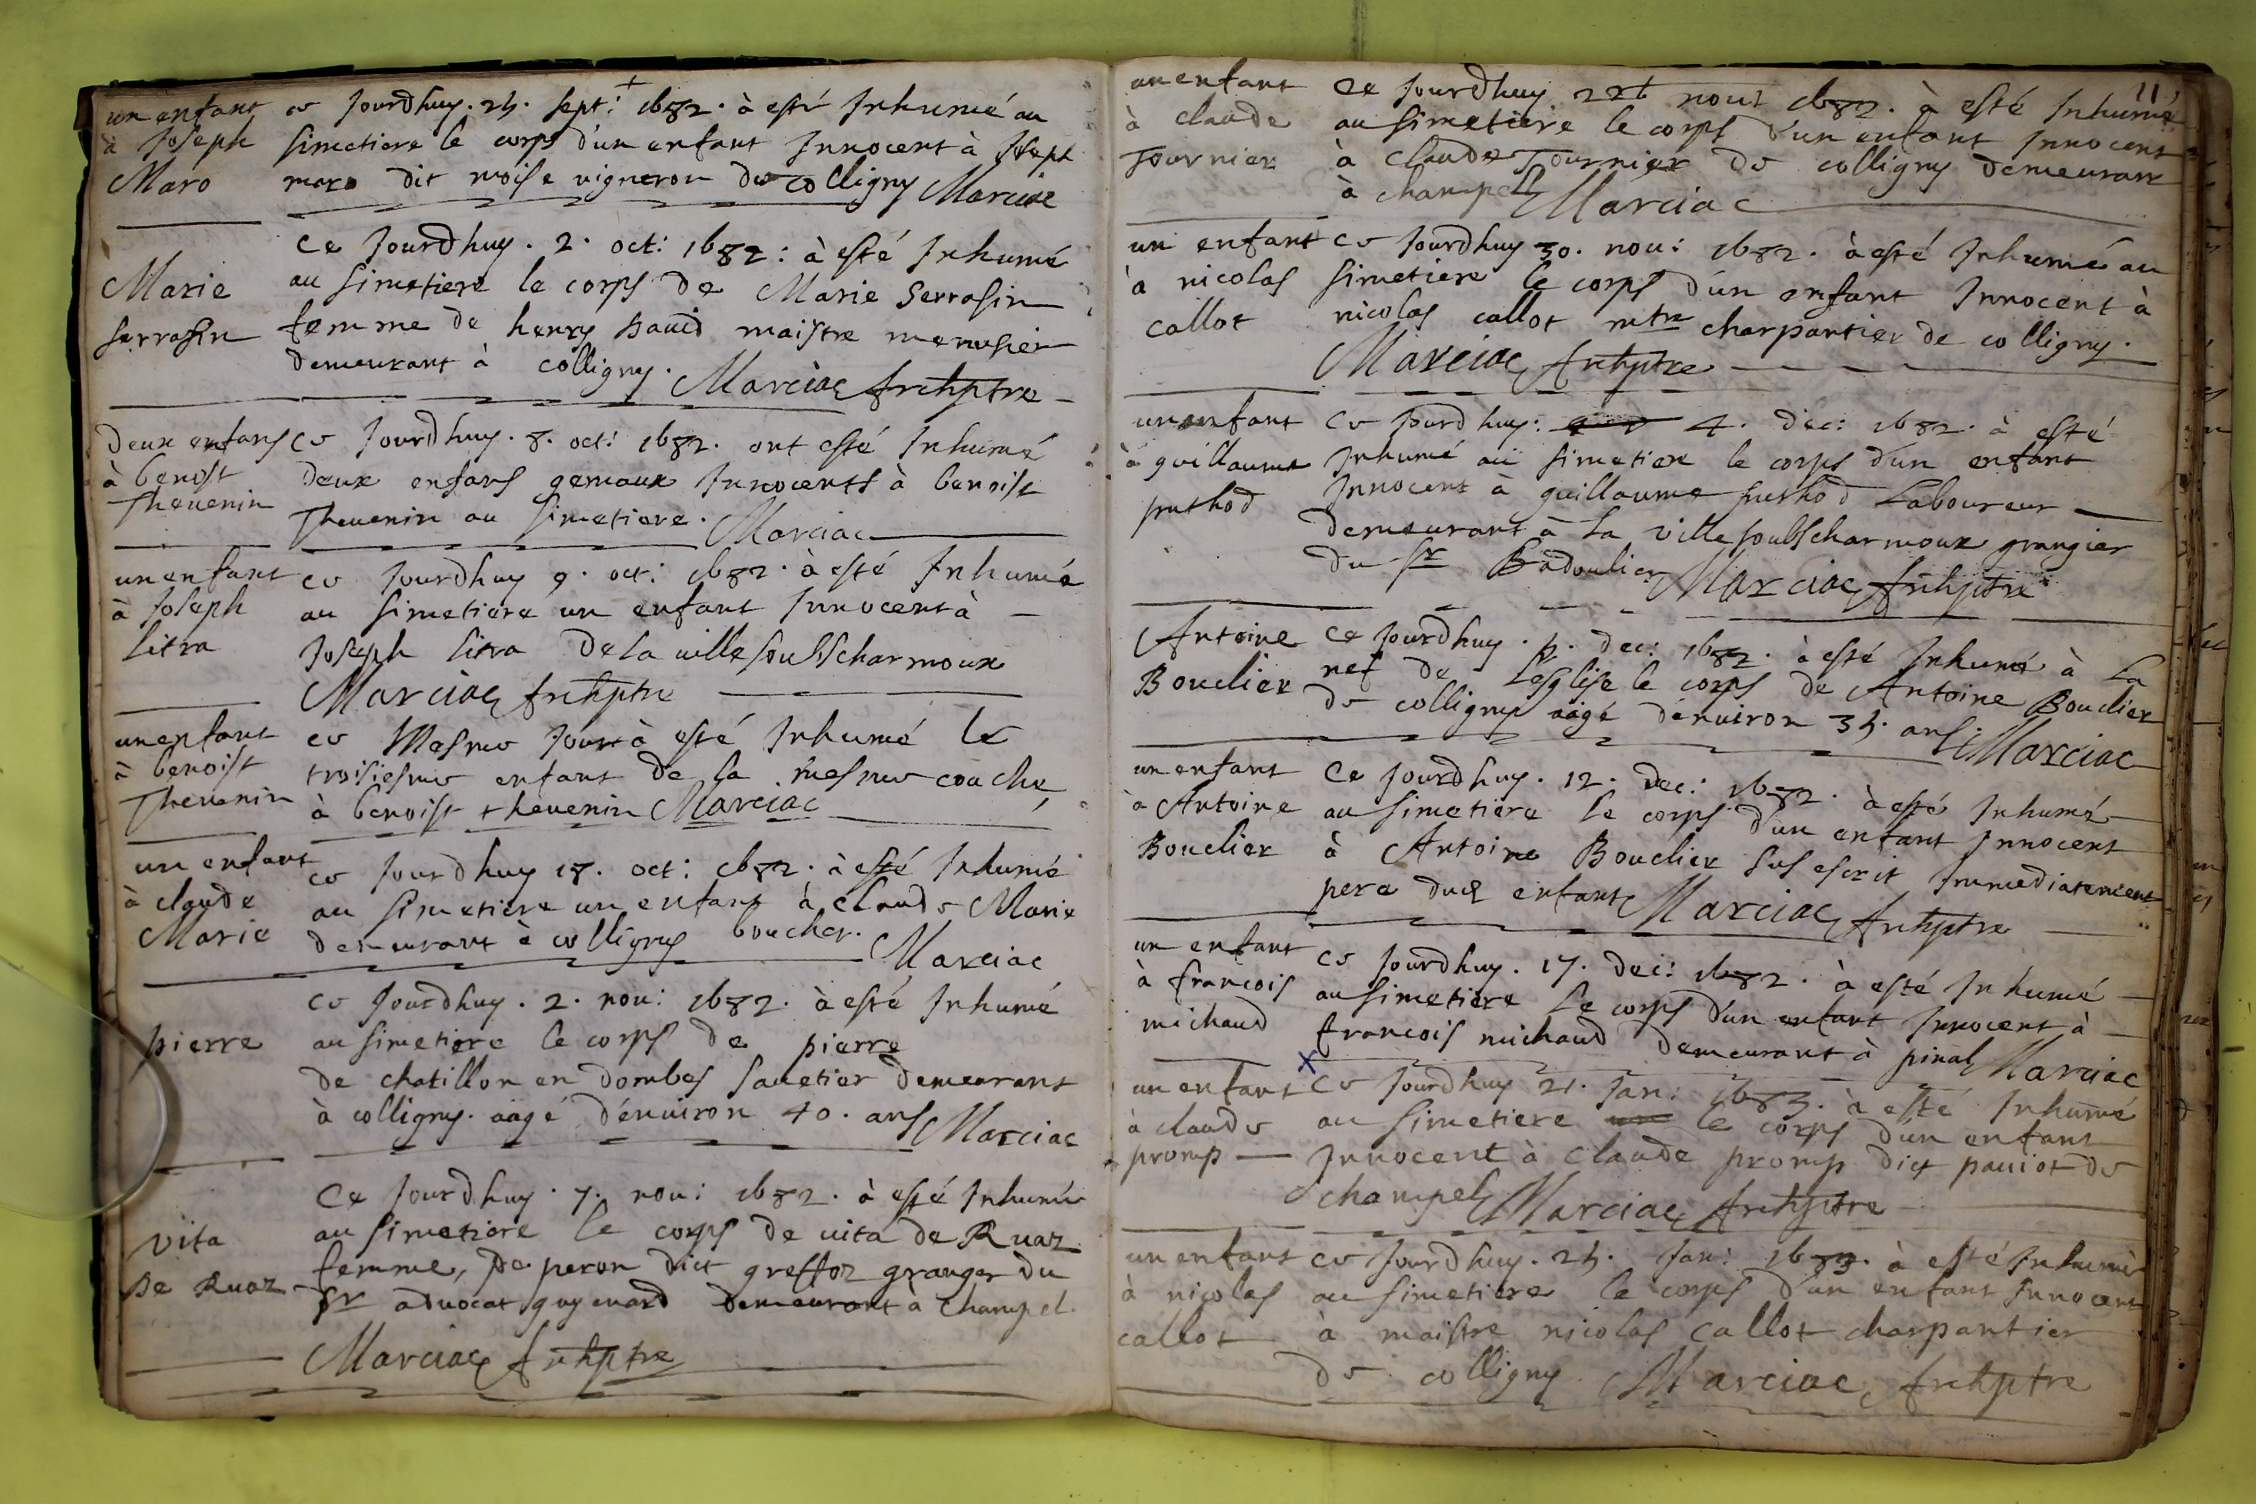 un enfant
à Joseph
Maro
ce Jourdhuy. 25. sept: 1682. à esté Inhumé au
simetiere le corps d'un enfant Innocent à Joseph
maro dit moise vigneron de colligny Marciac
Marie
serrasin
Ce Jourdhuy. 2. oct: 1682: à esté Inhumé
au simetiere le corps de Marie serrasin
femme de henry David maistre menusier
demeurant à colligny. Marciac Archptre
deux enfans
à benoist
Thevenin
ce Jourdhuy. 8. oct: 1682. ont esté Inhumé
deux enfans gemaux Innocents à benoist
Thevenin au simetiere. Marciac
un enfant
à Joseph
litra
ce Jourdhuy 9. oct: 1682. à esté Inhumé
au simetiere un enfant Innocent à
Joseph litra de la ville soubs charmoux
Marciac Archptre
un enfant
à benoist
Thevenin
ce Mesme Jour à esté Inhumé le
troisiesme enfant de la mesme couche,
à benoist thevenin Marciac
un enfant
à claude
Marie
ce Jourdhuy 18. oct: 1682. à esté Inhumé
au simetiere un enfant à claude Marie
demeurant à colligny boucher. Marciac
pierre
ce Jourdhuy. 2. nou: 1682. à esté Inhumé
au simetiere le corps de pierre
de chatillon en dombes sauetier demeurant
à colligny. aagé d'enuiron 40. ans Marciac
vita
De Ruaz
Ce Jourdhuy. 7. nou: 1682. à esté Inhumée
au simetiere le corps de uita de Ruaz
femme, De peron dict greffoz granger du
Sr aduocat guyenard demeurant à champel.
Marciac Archptre
11
un enfant
à claude
Tournier
Ce Jourdhuy nou: 1682. à esté Inhumé
au simetiere le corps d'un enfant Innocent
à claude Tournier de colligny demeurant
à champel Marciac
un enfant
à nicolas
callot
ce Jourdhuy 30. nou: 1682. à esté Inhumé au
simetiere le corps d'un enfant Innocent à
nicolas callot mtre charpantier de colligny.
Marciac Archptre
un enfant
à guillaume
puthod
ce Jourdhuy: 4. dec: 1682. à esté
Inhumé au simetiere le corps d'un enfant
Innocent à guillaume puthod Laboureur
demeurant à la ville soubs charmoux grangier
du Sr Badoulier Marciac Archptre
Antoine
Bouclier
Ce Jourdhuy. dec: 1682. à esté Inhumé à La
nef de Lesglise le corps de Antoine Bouclier
de colligny aagé d'enuiron 35. ans. Marciac
un enfant
à Antoine
Bouclier
Ce Jourdhuy. 12. dec: 1682. à esté Inhumé
au simetiere le corps d'un enfant Innocent
à Antoine Bouclier sus escrit Immediatement
pere dudt enfant Marciac Archptre
un enfant
à francois
michaud
ce Jourdhuy. 17. dec: 1682. à esté Inhumé
au simetiere le corps d'un enfant Innocent à
francois michaud demeurant à pinal Marciac
un enfant
à claude
promp
ce Jourdhuy 21. Jan: 1683. à esté Inhumé
au simetiere le corps d'un enfant
Innocent à claude promp dict pauiot de
champel Marciac Archptre
un enfant
à nicolas
callot
ce Jourdhuy. 25. Jan: 1683. à esté Inhumé
au simetiere le corps d'un enfant Innocent
à maistre nicolas callot charpantier
de colligny. Marciac, Archptre